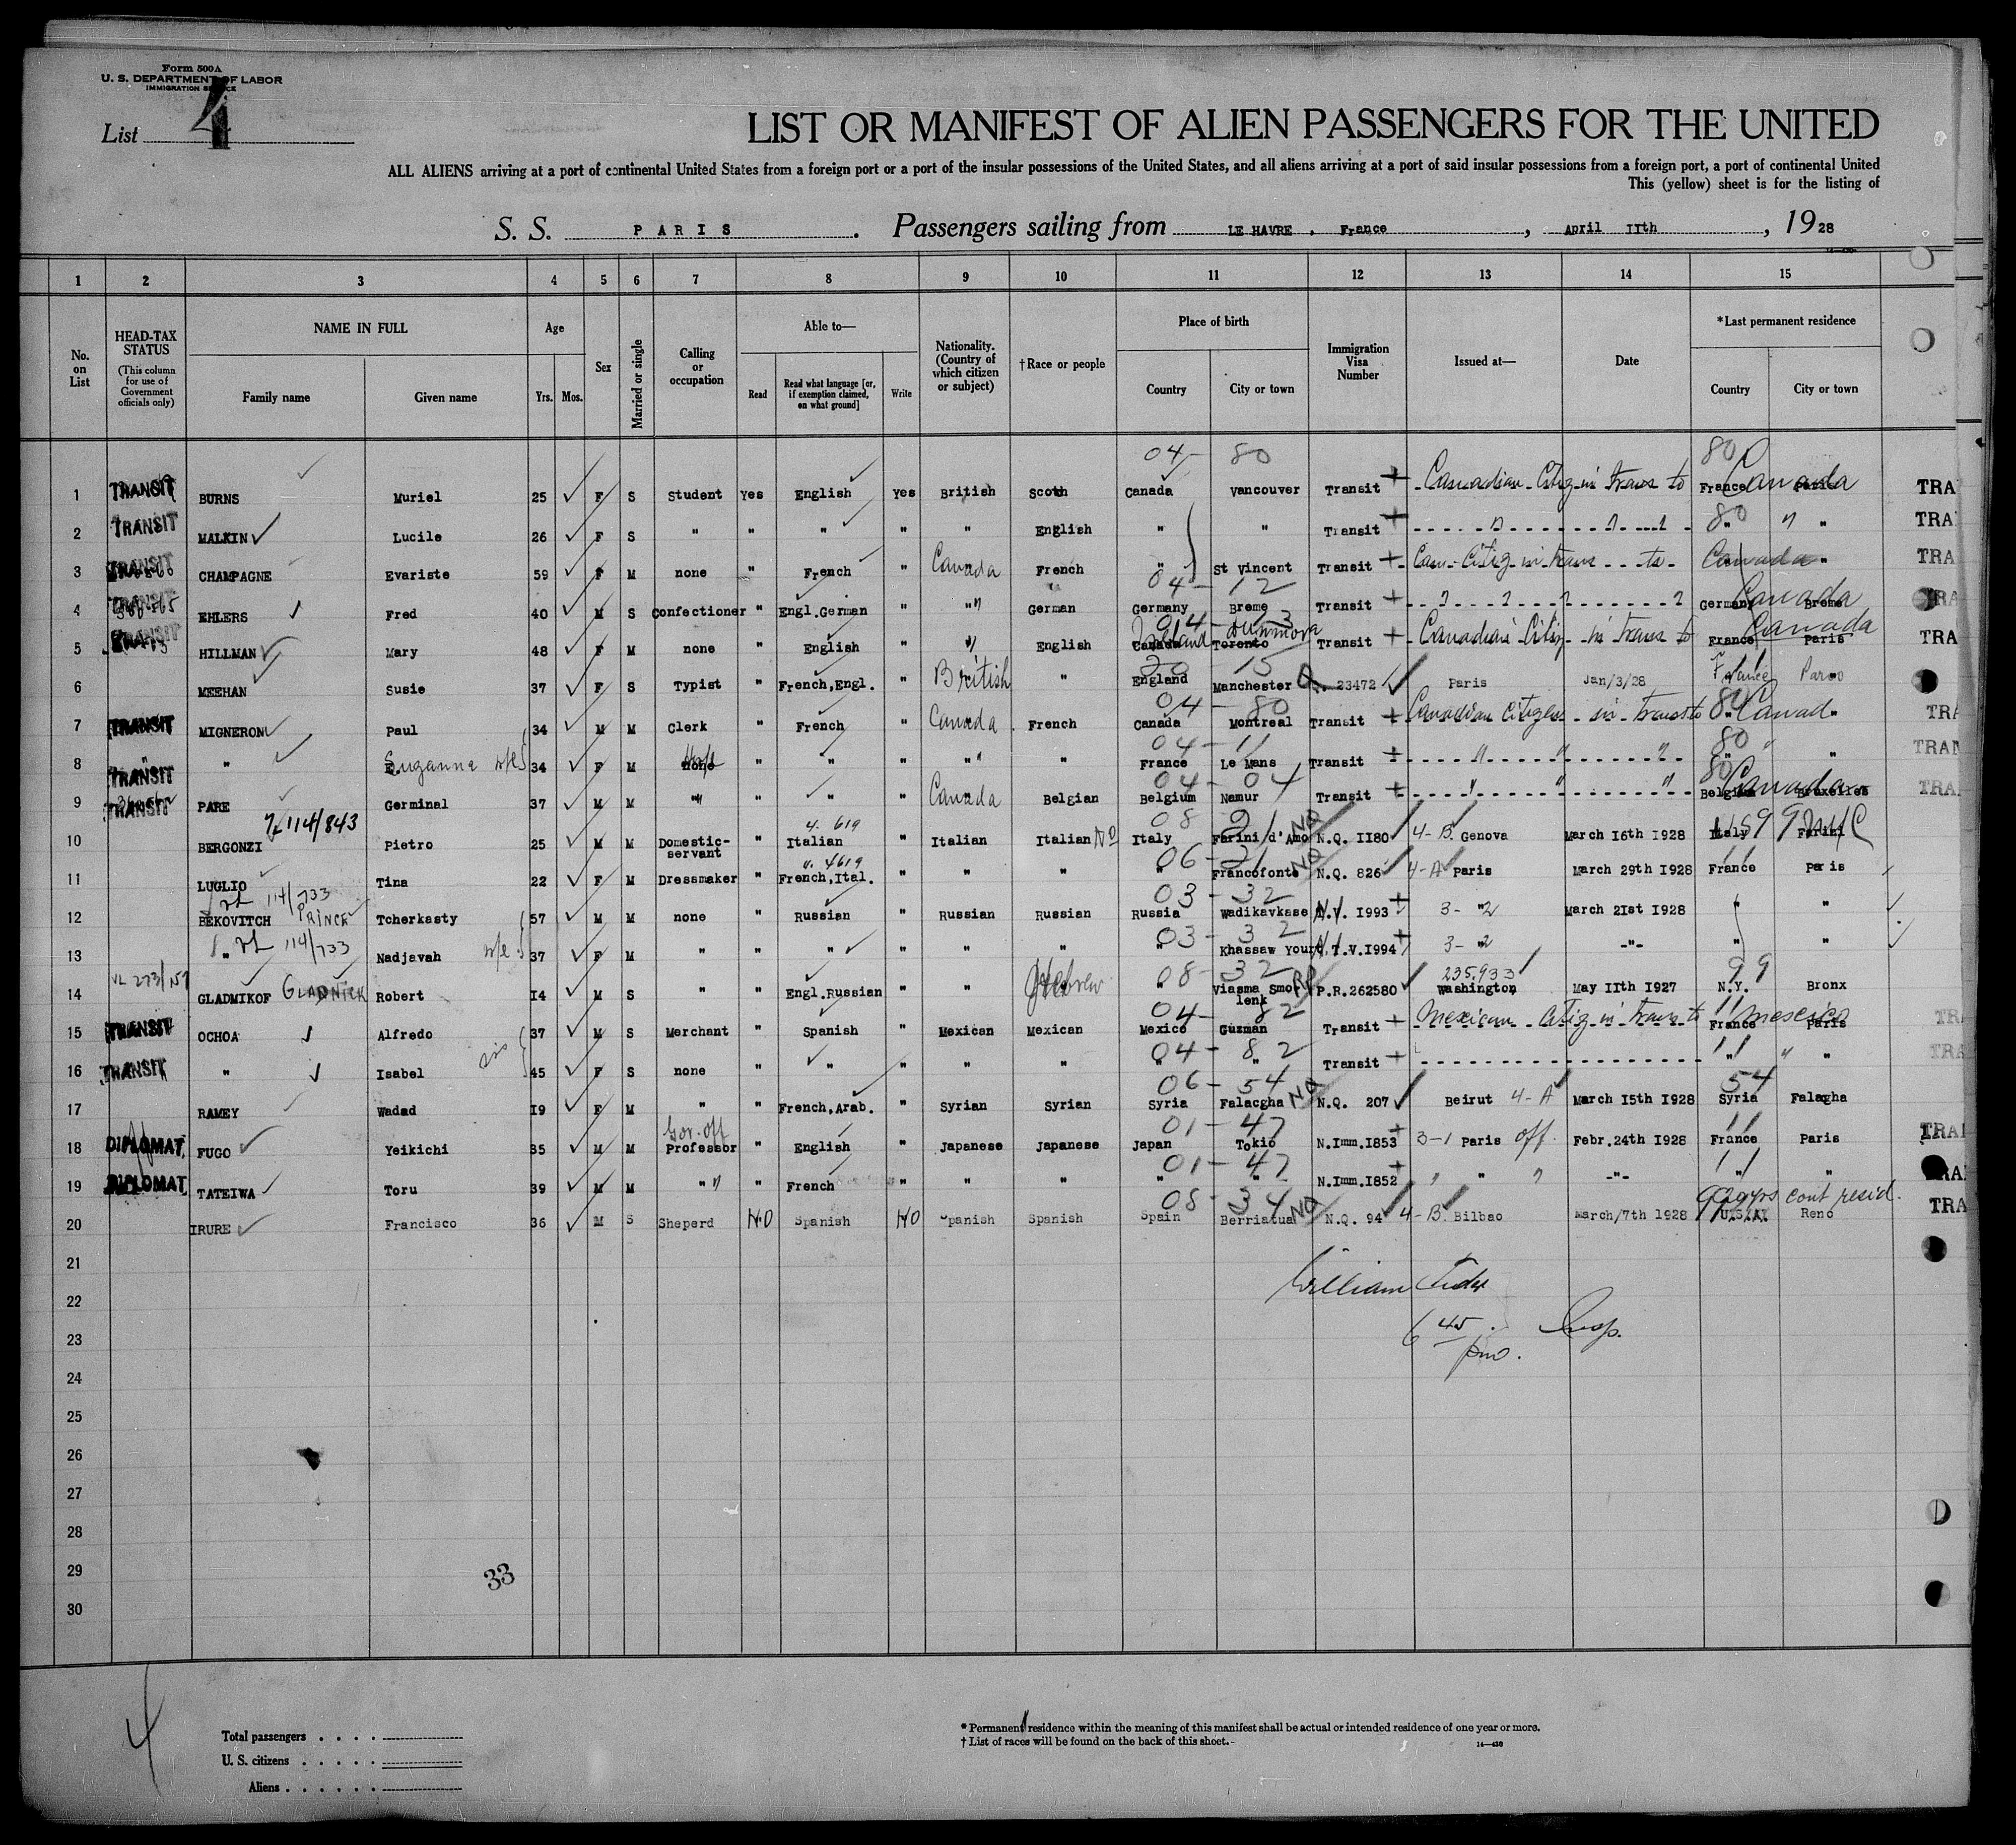 Form 500 A
U. S. DEPARTMENT OF LABOR
IMMIGRATION SERVICE
List 4
LIST OR MANIFEST OF ALIEN PASSENGERS FOR THE UNITED
ALL ALIENS arriving at a port of continental United States from a foreign port or a port of the insular possessions of the United States, and all aliens arriving at a port of said insular possessions from a foreign port, a port of continental United
This (yellow) sheet is for the listing of
S. S. PARIS . Passengers sailing from LE HAVRE , France , April IIth , 1928
1 2 3 4 5 6 7 8 9 10 11 12 13 14 15
No. on List
HEAD-TAX STATUS (This column for use of Government officials only)
NAME IN FULL
Family name Given name
Age
Yrs. Mos.
Sex
Married or single
Calling or occupation
Able to—
Read Read what language [or, if exemption claimed, on what ground] Write
Nationality. (Country of which citizen or subject)
†Race or people
Place of birth
Country City or town
Immigration Visa Number
Issued at—
Date
*Last permanent residence
Country City or town
04- 80 80
1 TRANSIT BURNS Muriel 25 F S Student Yes English Yes British Scoth Canada Vancouver Transit Canadian Citiz in trans to France Canada Paris TRA
2 TRANSIT MALKIN Lucile 26 F S " " " " " English " " Transit " " " 80 " " TRA
3 TRANSIT CHAMPAGNE Evariste 59 F M none " French " Canada French " St Vincent Transit Can-Citiz in trans to Canada " TRA
04- 12
4 TRANSIT EHLERS Fred 40 M S Confectioner " Engl.German " " German Germany Breme Transit " " " " Germany Canada Breme TRA
5 TRANSIT HILLMAN Mary 48 F M none " English " " English Canada Toronto Transit Canadian Citiz in trans to France Canada Paris TRA
20 15
6 MEEHAN Susie 37 F S Typist " French,Engl. " British " England Manchester 23472 Paris Jan/3/28 France Paris
04- 80 80
7 TRANSIT MIGNERON Paul 34 M M Clerk " French " Canada French Canada Montreal Transit Canadian Citizen in trans to Canad. " TRA
04- 11 80
8 TRANSIT " Suzanna wife 34 F M none " " " " " France Le Mans Transit " " " " " TRAN
04- 04 80
9 TRANSIT PARE Germinal 37 M M " " " " Canada Belgian Belgium Namur Transit " " " Belgium Canada Bruxelles TRA
114/843 4. 619 08 21
10 BERGONZI Pietro 25 M M Domestic-servant " Italian " Italian Italian No Italy Farini d'Amo NQ N.Q. II80 4-B. Genova March I6th I928 Italy Farini
4619 06-21
11 LUGLIO Tina 22 F M Dressmaker " French,Ital. " " " " Francofonte NQ N.Q. 826 4-A Paris March 29th I928 France Paris
114/733 03- 32
12 BEKOVITCH PRINCE Tcherkasty 57 M M none " Russian " Russian Russian Russia Wadikavkase N.V. I993 3-2 " March 2Ist I928 " "
114/733 03- 32
13 " Nadjavah wife 37 F M " " " " " " " Khassaw Yourt T.V.I994 3-2 " -"- " "
VL 273/157 08- 32 235.933 99
14 GLADMIKOF GLADNICK Robert I4 M S " " Engl.Russian " " Hebrew " Viasma Smolenk P.R.262580 Washington May IIth I927 N.Y. Bronx
04- 82 11
15 TRANSIT OCHOA Alfredo 37 M S Merchant " Spanish " Mexican Mexican Mexico Guzman Transit Mexican Citiz in trans to France Mexico Paris TR
04- 82 11
16 TRANSIT " Isabel sis 45 F S none " " " " " " " Transit " " " TRA
06- 54 54
17 RAMEY Wadad I9 F M " " French,Arab. " Syrian Syrian Syria Falacgha NQ N.Q. 207 Beirut 4-A March I5th I928 Syria Falagha
Gov. off 01- 47 11
18 DIPLOMAT FUGO Yeikichi 35 M M Professor " English " Japanese Japanese Japan Tokio N.Imm.I853 3-1 Paris off. Febr.24th I928 France Paris TRA
01- 47 11
19 DIPLOMAT TATEIWA Toru 39 M M " " French " " " " " N.Imm.I852 " " " -"- " " TRA
08- 34 99 yrs cont resid.
20 IRURE Francisco 36 M S Sheperd NO Spanish NO Spanish Spanish Spain Berriatua NQ N.Q. 94 4-B. Bilbao March/7th 1928 U.S.A. Reno TRA
21
22
William
23
6 45 pm. Insp.
24
25
26
27
28
29
33
30
4
Total passengers
U. S. citizens
Aliens
* Permanent residence within the meaning of this manifest shall be actual or intended residence of one year or more.
† List of races will be found on the back of this sheet.
14—430